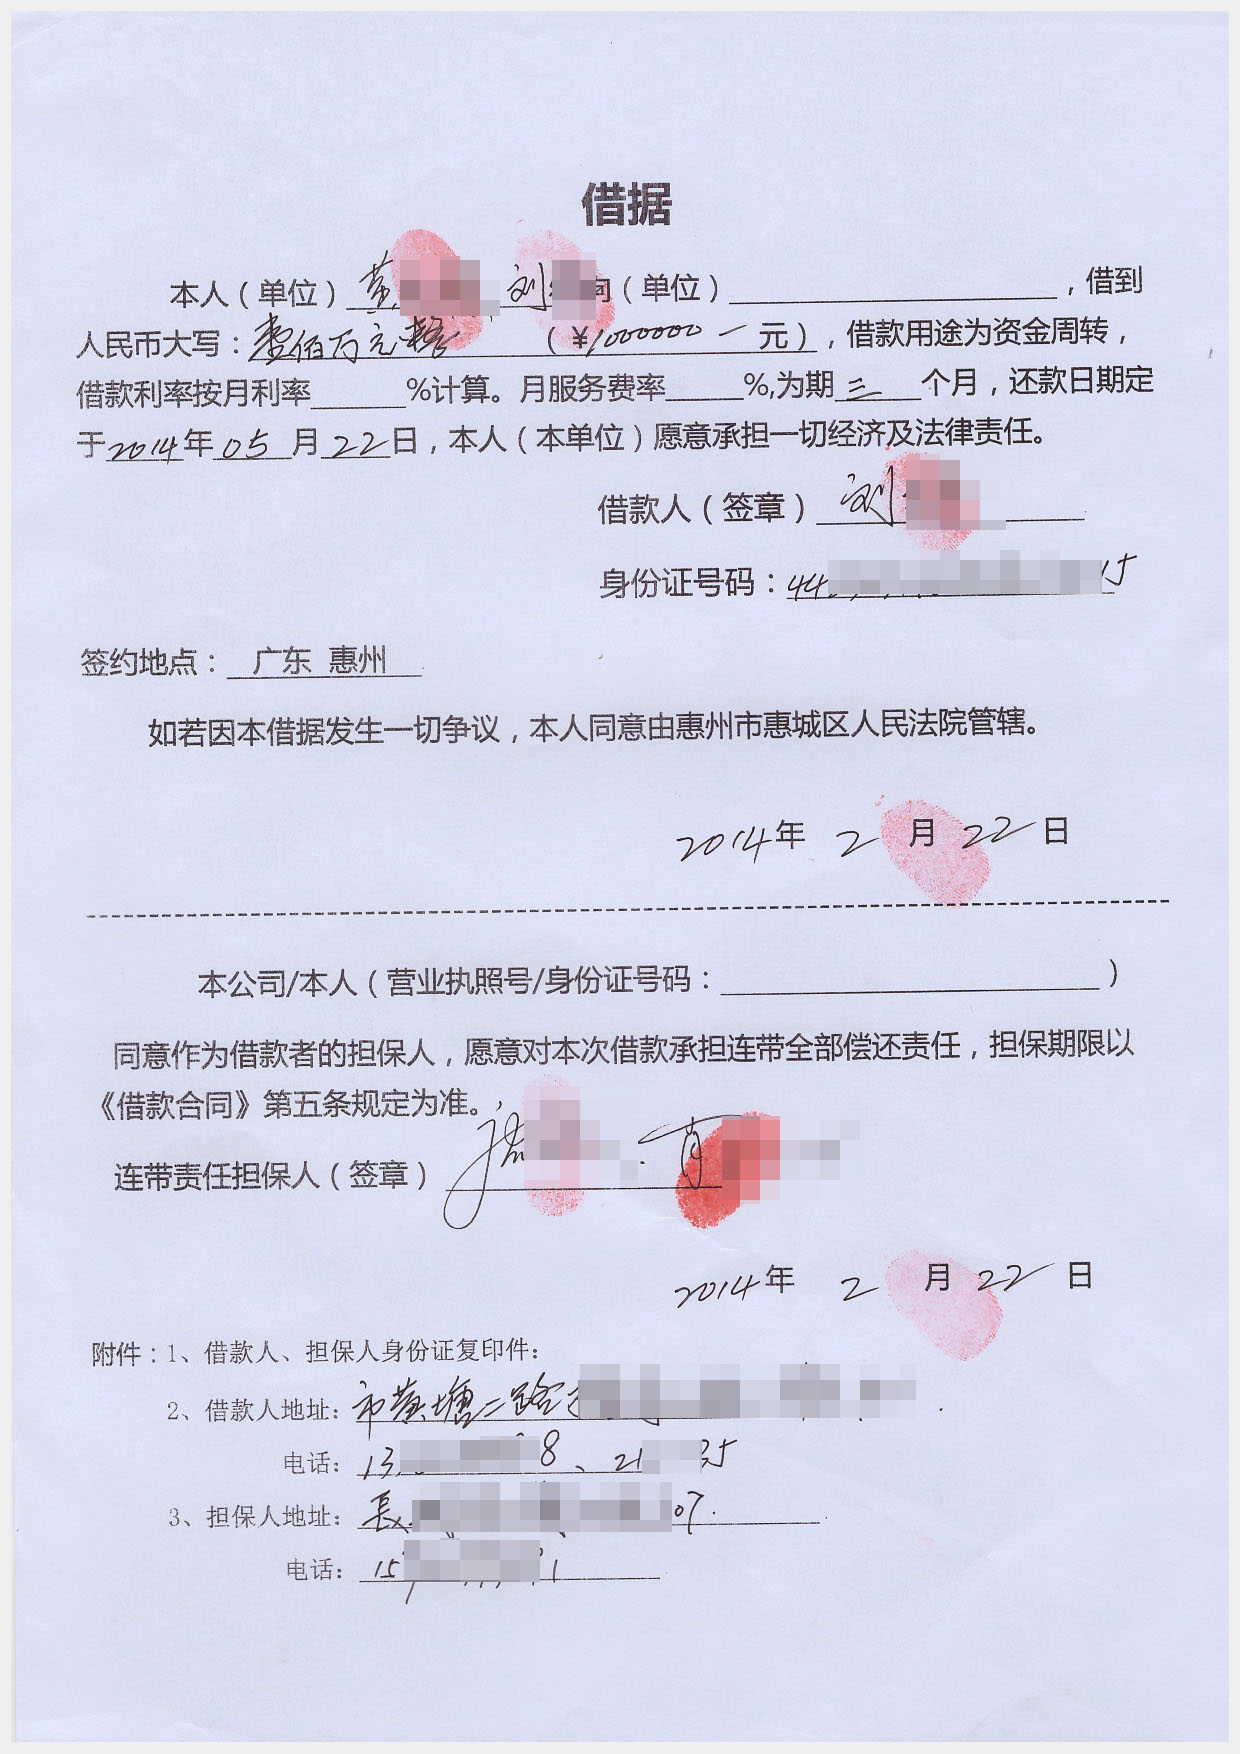 借据
本人（单位）黄 刘 向（单位），借到
人民币大写：壹佰万元整（¥1000000一元），借款用途为资金周转，
借款利率按月利率 %计算。月服务费率 %,为期三个月，还款日期定
于2014年05月22日，本人（本单位）愿意承担一切经济及法律责任。
借款人（签章）刘
身份证号码：44 15
签约地点：广东 惠州
如若因本借据发生一切争议，本人同意由惠州市惠城区人民法院管辖。
2014年 2月22日
本公司/本人（营业执照号/身份证号码： ）
同意作为借款者的担保人，愿意对本次借款承担连带全部偿还责任，担保期限以
《借款合同》第五条规定为准。
连带责任担保人（签章） 肖
2014年 2月22日
附件：1、借款人、担保人身份证复印件：
2、借款人地址：市黄塘二路
电话：13 8、21 35
3、担保人地址：长 07.
电话：15 1